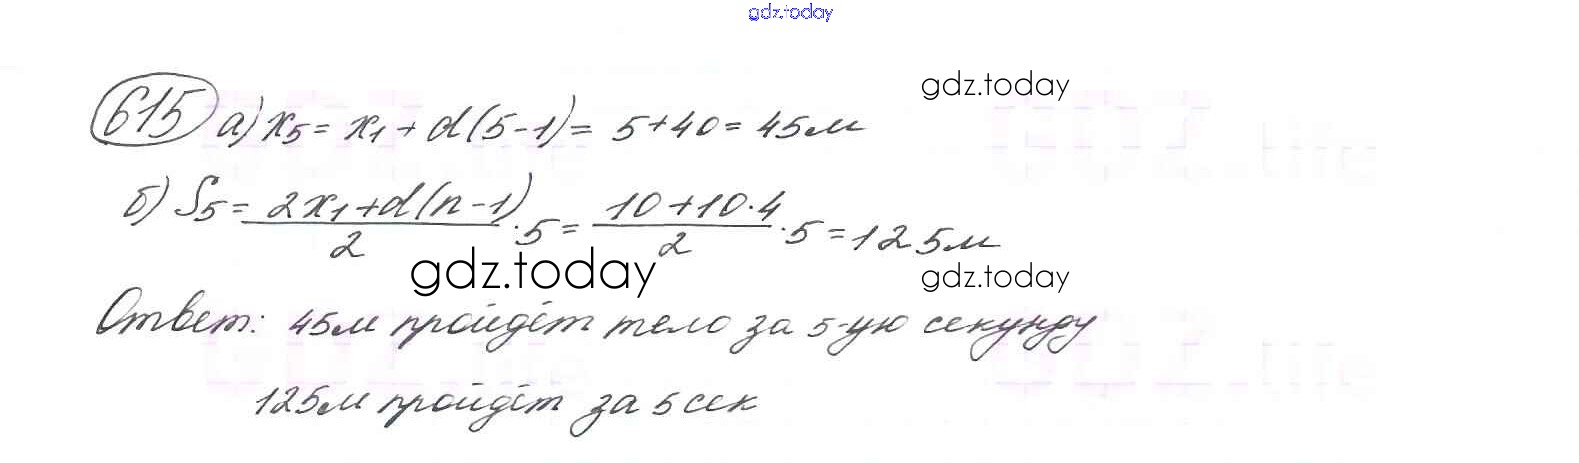 gdz.today
gdz.today
615 а) x₅ = x₁ + d(5-1) = 5+40 = 45м
б) S₅ = (2x₁+d(n-1))/2 · 5 = (10+10·4)/2 · 5 = 125м
gdz.today
gdz.today
Ответ: 45м пройдёт тело за 5-ую секунду
125м пройдёт за 5 сек